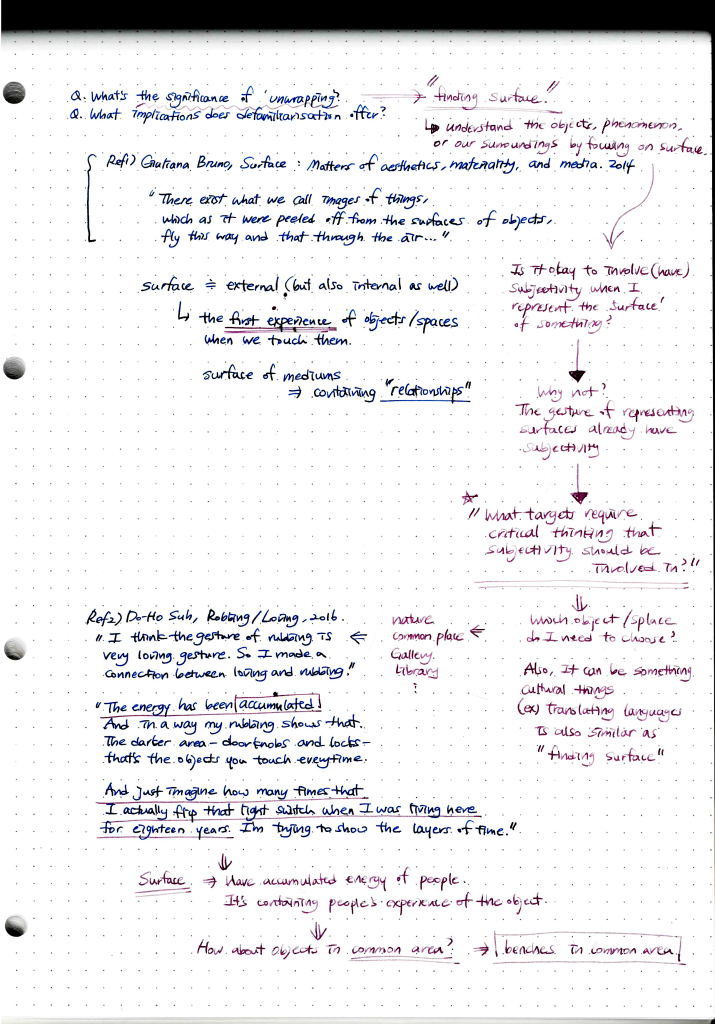 Q. What's the significance of 'unwrapping'? → "finding surface."
Q. What implications does defamiliarisation offer?
↳ understand the objects, phenomenon,
or our surroundings by focusing on surface.
Ref1) Giuliana Bruno, Surface : Matters of aesthetics, materiality, and media. 2014
"There exist what we call images of things,
which as it were peeled off from the surfaces of objects,
fly this way and that through the air..."
surface ≒ external (but also internal as well)
↳ the first experience of objects/spaces
when we touch them.
surface of mediums
⇒ containing "relationships"
Is it okay to involve (have)
subjectivity when I
represent the 'surface'
of something?
Why not?
The gesture of representing
surfaces already have
subjectivity
☆
"What targets require
critical thinking that
subjectivity should be
involved in?"
⇓
Which object/splace
do I need to choose?
← nature
common place
Gallery
Library
⋮
Also, It can be something
cultural things
(ex) translating languages
is also similar as
"finding surface"
Ref2) Do-Ho Suh, Robbing/Loving, 2016. ←
"I think the gesture of rubbing is
very loving gesture. So I made a
connection between loving and rubbing."
"The energy has been accumulated
And in a way my rubbing shows that.
The darker area - doorknobs and locks -
that's the objects you touch everytime.
And just imagine how many times that
I actually flip that light switch when I was living here
for eighteen years. I'm trying to show the layers of time."
⇓
Surface ⇒ Have accumulated energy of people.
It's containing people's experience of the object.
⇓
How about objects in common area? ⇒ benches in common area